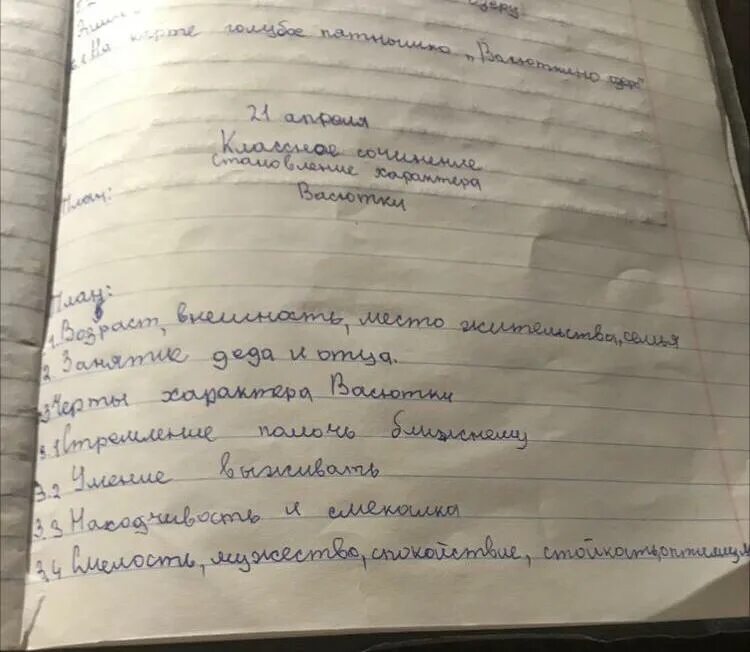 озеру
на карте голубое пятнышко „Васюткино озеро"
21 апреля
Классное сочинение
Становление характера
План: Васютки
План:
1. Возраст, внешность, место жительства, семья
2 Занятие деда и отца.
3 Черты характера Васютки
3.1 Стремление помочь ближнему
3.2 Умение выживать
3.3 Находчивость и смекалка
3.4 Смелость, мужество, спокойствие, стойкость, оптимизм